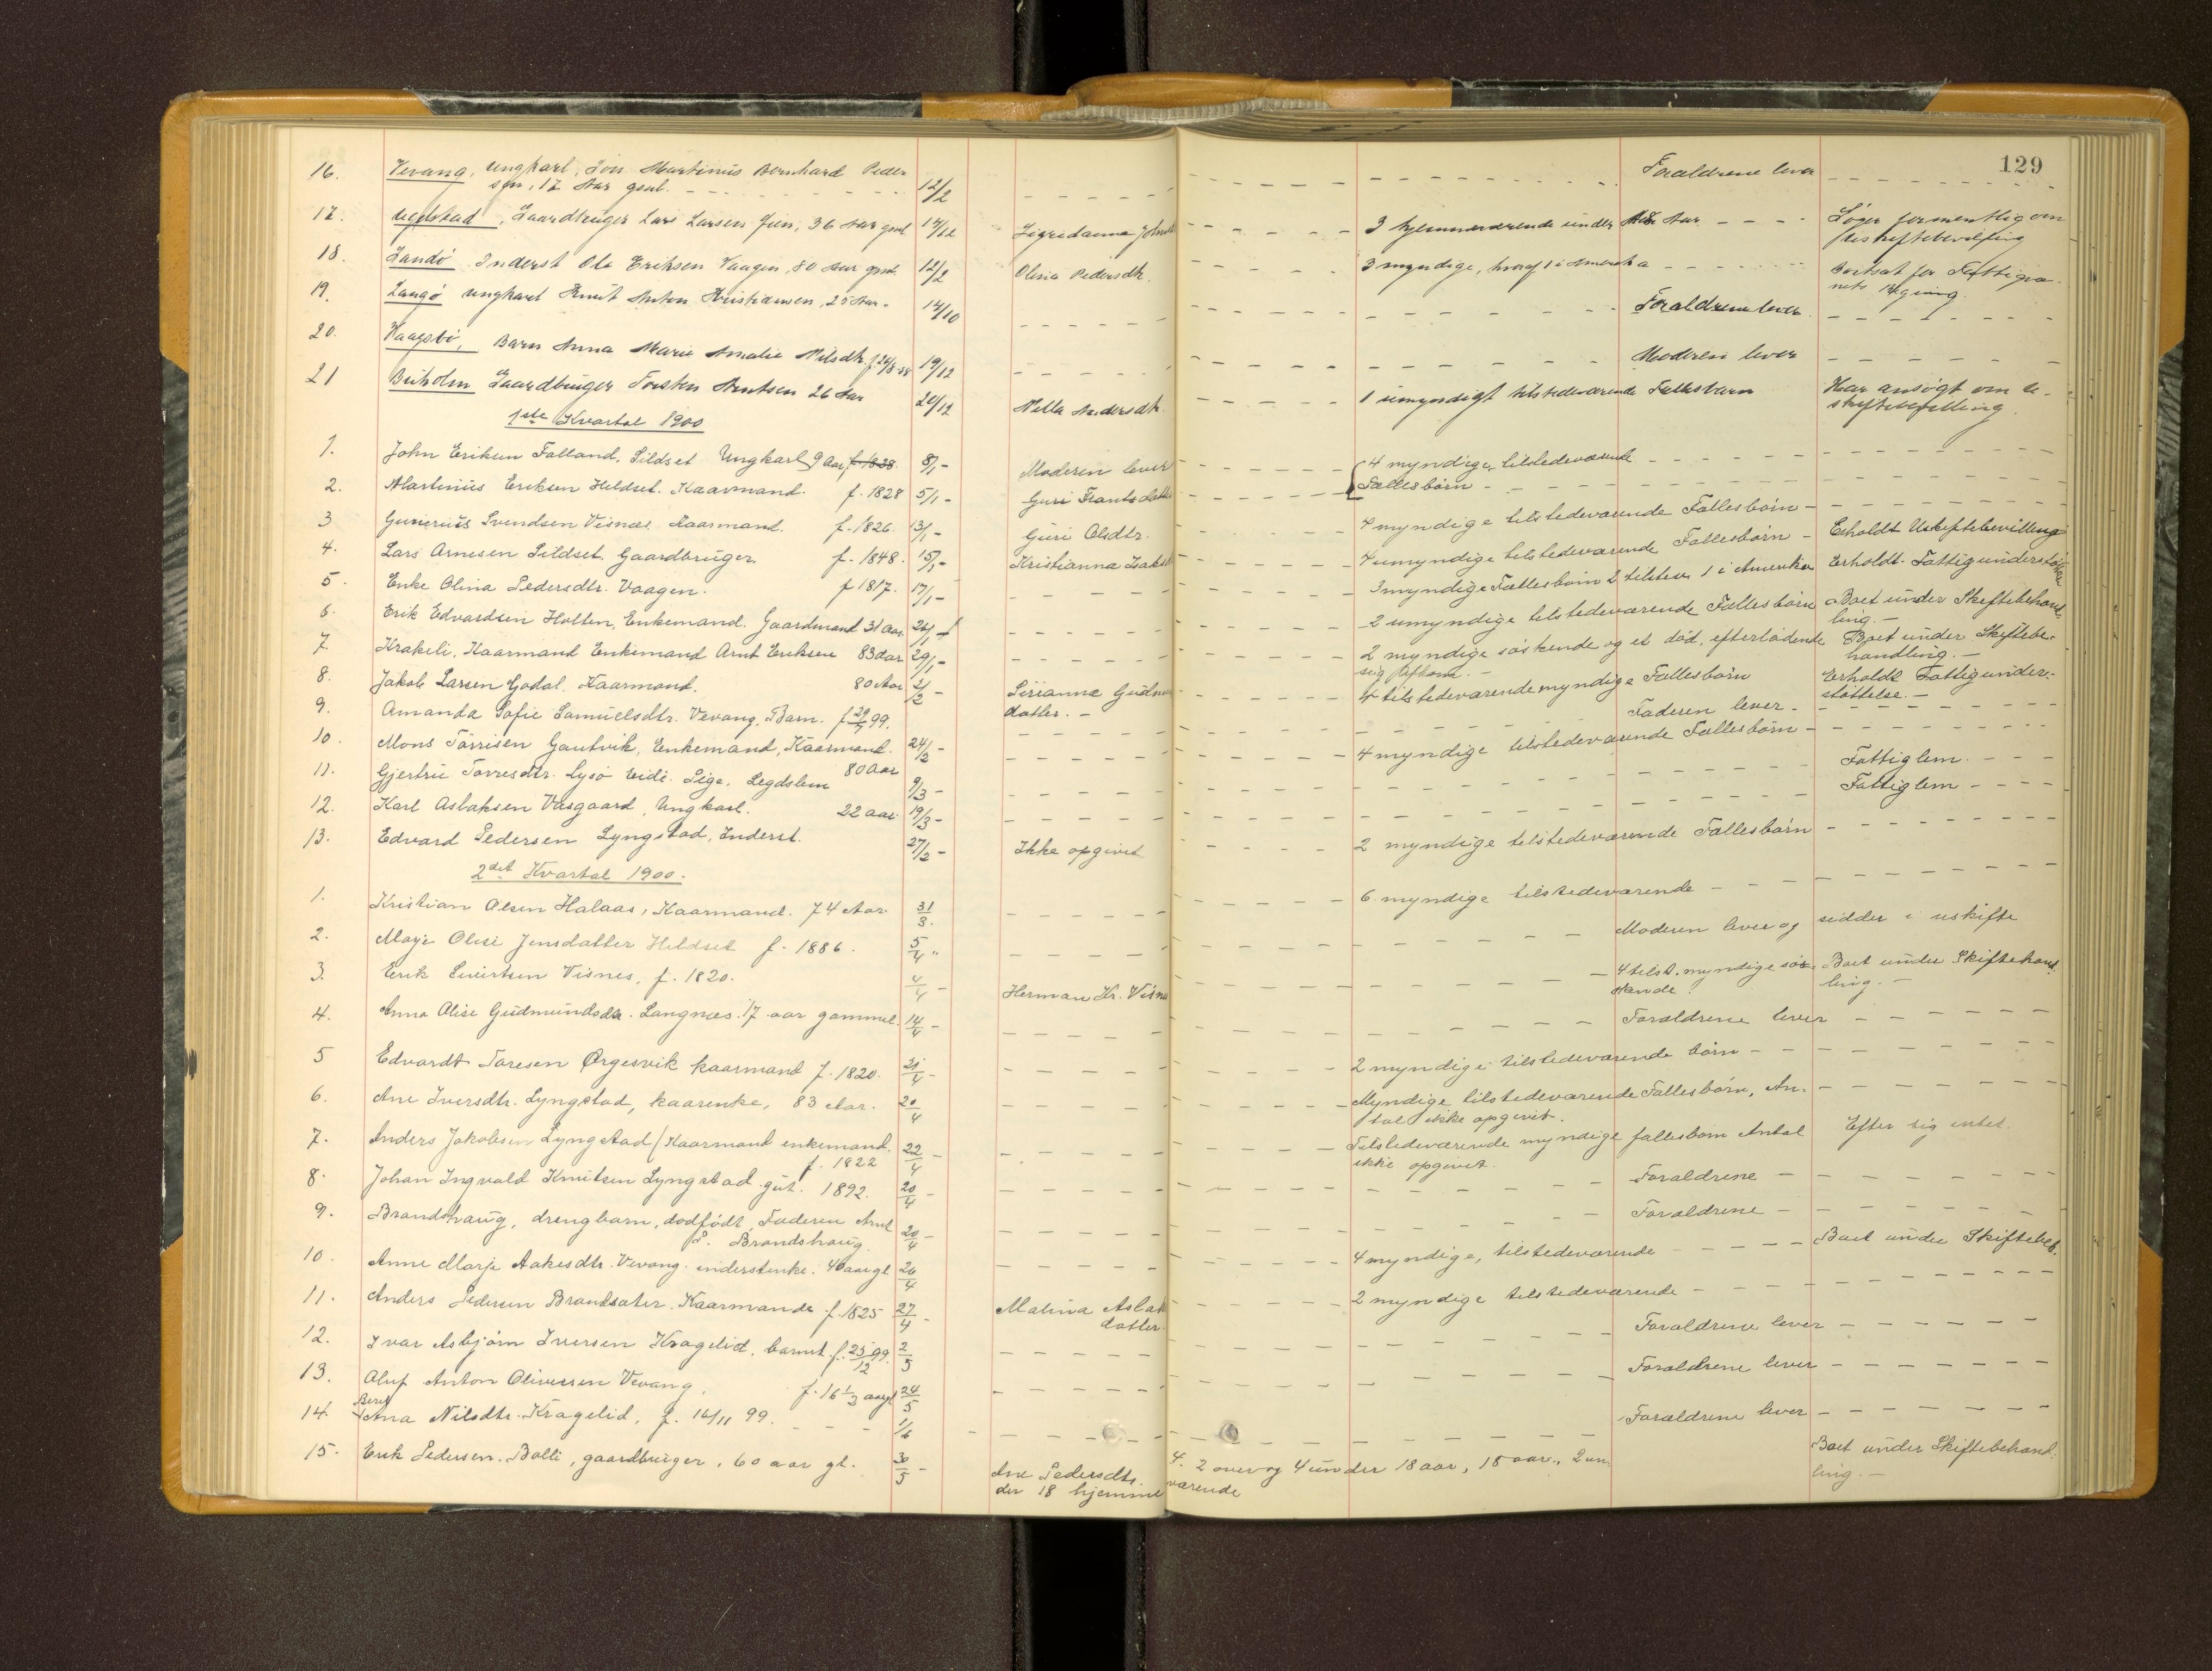 129
16. Vevang, Ungkarl, Jon Martinus Bernhard Peder 12/2 Forældrene lever
sen, 17 Aar gml.
17. Gaardbruger Lars Larsen Jun, 36 Aar gml 3 hjemmeværende under 18 Aar Søger formentlig om
18. Sandö Inderst Ole Eriksen Vaagen, 80 Aar gml. 12/2 Olina Pedersdtr. 3 myndige, hvoraf 1 i Amerika
19. Langö Ungkarl Knut Anton Kristiansen, 25 Aar. 14/10 Forældrene lever
20. Haagsbö, Barn Anna Marie Amalie Nilsdtr. 19/12 Moderen lever
21 Gaardbruger Torsten Arntsen 26 Aar 20/12 Nella Andersdtr. 1 umyndigt tilstedeværende Fællesbarn Har ansögt om u-
1ste Kvartal 1900
1. John Eriksen Folland, Sildset Ungkarl 9 Aar f. 1828. 8/1 - Moderen lever 4 myndige, tilstedeværende
2. Martinius Eriksen Heldset. Kaarmand. f. 1828 5/1 - Guri Frantsdatter Fællesbörn -
3 Svendsen Visnæs, Kaarmand. f. 1826. 13/1 - Guri Olsdtr. 4 myndige tilstedeværende Fællesbörn -
4. Lars Arnesen Sildset. Gaardbruger f. 1848. 15/1 - Kristianna Isaks 4 umyndige tilstedeværende Fællesbörn - Erholdt Uskiftebevilling
5. Enke Olina Pedersdtr. Vaagen. f 1817. 17/1 - 3 myndige Fællesbörn 2 tilstev. 1 i Amerika Erholdt Fattigunderstöttelse
6. Erik Edvardsen Holten, Enkemand. Gaardmand 31 Aar. 26/1 2 umyndige tilstedeværende Fællesbörn Boet under Skiftebehand
ling. -
7. Krakeli, Kaarmand Enkemand Arnt Eriksen 83 Aar 29/1 - 2 myndige söskende og et död, efterladende Boet under Skiftebe-
sig Afkom. - handling. -
8. Jakob Larsen Godal. Kaarmand. 80 Aar 2/2 - Sirianna Gudmu 4 tilstedeværende myndige Fællesbörn Erholdt Fattigunder-
datter. - støttelse. -
9. Amanda Sofie Samuelsdtr. Vevang, Barn. Faderen lever -
10. Mons Törrisen Gautvik, Enkemand, Kaarmand. 24/2 - 4 myndige tilstedeværende Fællesbörn -
80 Aar
11. Gjertru Torresdtr. Lysö Pige, Legdslem 9/3 - Fattiglem.
12. Karl Aslaksen Vasgaard, Ungkarl. 22 aar 19/3 - Fattiglem -
13. Edvard Pedersen Lyngstad, Inderst. 27/2 - Ikke opgivet 2 myndige tilstedeværende Fællesbörn -
2det Kvartal 1900.
1. Kristian Olsen Halaas, Kaarmand. 74 Aar 31/3. 6 myndige tilstedeværende -
2. Olise Jensdatter Heldset f. 1886. 5/4 " Moderen lever og sidder i uskifte
3. Erik Sivertsen Visnes, f. 1820. 4/4 - Herman Kr. Visne 4 tilst. myndige sös- Boet under Skiftehand
kende. ling. -
4. Anna Olise Gudmundsdtr. Langnæs. 17 aar gammel. 14/4 - Forældrene lever
5 Edvardt Toresen Ørgesvik kaarmand f. 1820. 21/4 - 2 myndige tilstedeværende börn -
6. Ane Iversdtr. Lyngstad, kaarenke, 83 Aar. 20/4 Myndige tilstedeværende Fællesbörn, An-
tal ikke opgivet.
7. Anders Jakobsen Lyngstad / Kaarmand enkemand. 22/4 - Tilstedeværende myndige fællesbörn Antal Efter sig intet.
f. 1822 ikke opgivet.
8. Johan Ingvald Knutsen Lyngstad gut. 1892. 20/4 - Forældrene -
9. Brandshaug, drengbarn, dodfödt, Faderen Arnt 20/4 - Forældrene -
P. Brandshaug
10. Anne Marje Aakesdtr. Vevang inderstenke. 40 aar gl 26/4 4 myndige, tilstedeværende Boet under Skiftebeh.
11. Anders Pedersen Brandsæter. Kaarmand f. 1825 27/4 - Malina Aslak 2 myndige tilstedeværende -
datter.
12. Ivar Asbjörn Iversen Kragelid, barn f. 25/12 99. 2/5 Forældrene lever
13. Oluf Anton Oliversen Vevang, f. 16 1/2 aar gl 24/5 Forældrene lever
14. Berit Ana Nilsdtr. Kragelid, f. 16/11 99. 1/6 Forældrene lever
15. Erik Pedersen. Bolli, gaardbruger, 60 aar gl. 30/5 - Ane Pedersdtr. 4. 2 over og 4 under 18 aar, 18 aar, 2 un Boet under Skiftebehand
der 18 hjemme værende ling. -